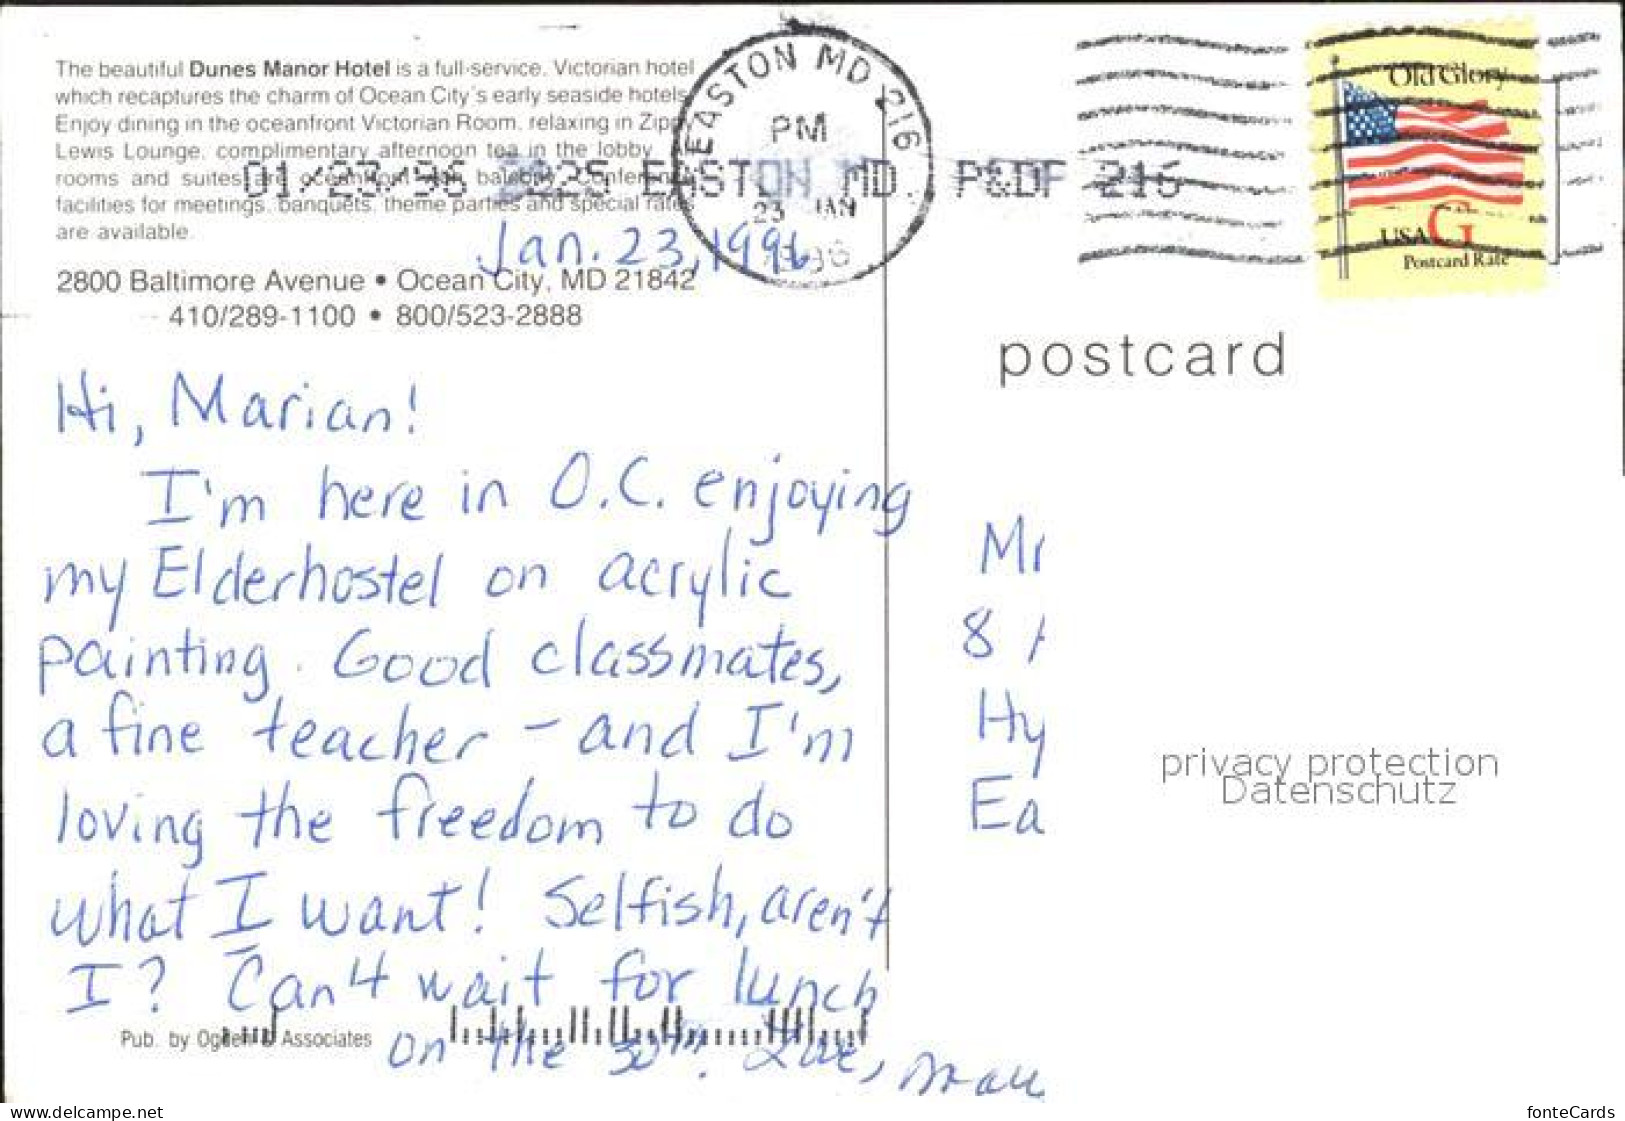 The beautiful Dunes Manor Hotel is a full-service, Victorian hotel
which recaptures the charm of Ocean City's early seaside hotels.
Enjoy dining in the oceanfront Victorian Room, relaxing in Zippy
Lewis Lounge, complimentary afternoon tea in the lobby. All
rooms and suites are oceanfront with balcony. Conference
facilities for meetings, banquets, theme parties and special rates
are available.
2800 Baltimore Avenue • Ocean City, MD 21842
410/289-1100 • 800/523-2888
EASTON MD 216
PM
23 JAN
1996
01/23/96 EASTON MD. P&DF 216
Old Glory
USA G
Postcard Rate
postcard
Jan. 23, 1996
Hi, Marian!
I'm here in O.C. enjoying
my Elderhostel on acrylic
painting. Good classmates,
a fine teacher - and I'm
loving the freedom to do
what I want! Selfish, aren't
I? Can't wait for lunch
on the 30th. Love,
Mr
8
Hy
Ea
privacy protection
Datenschutz
Pub. by Ogden & Associates
www.delcampe.net
fonteCards